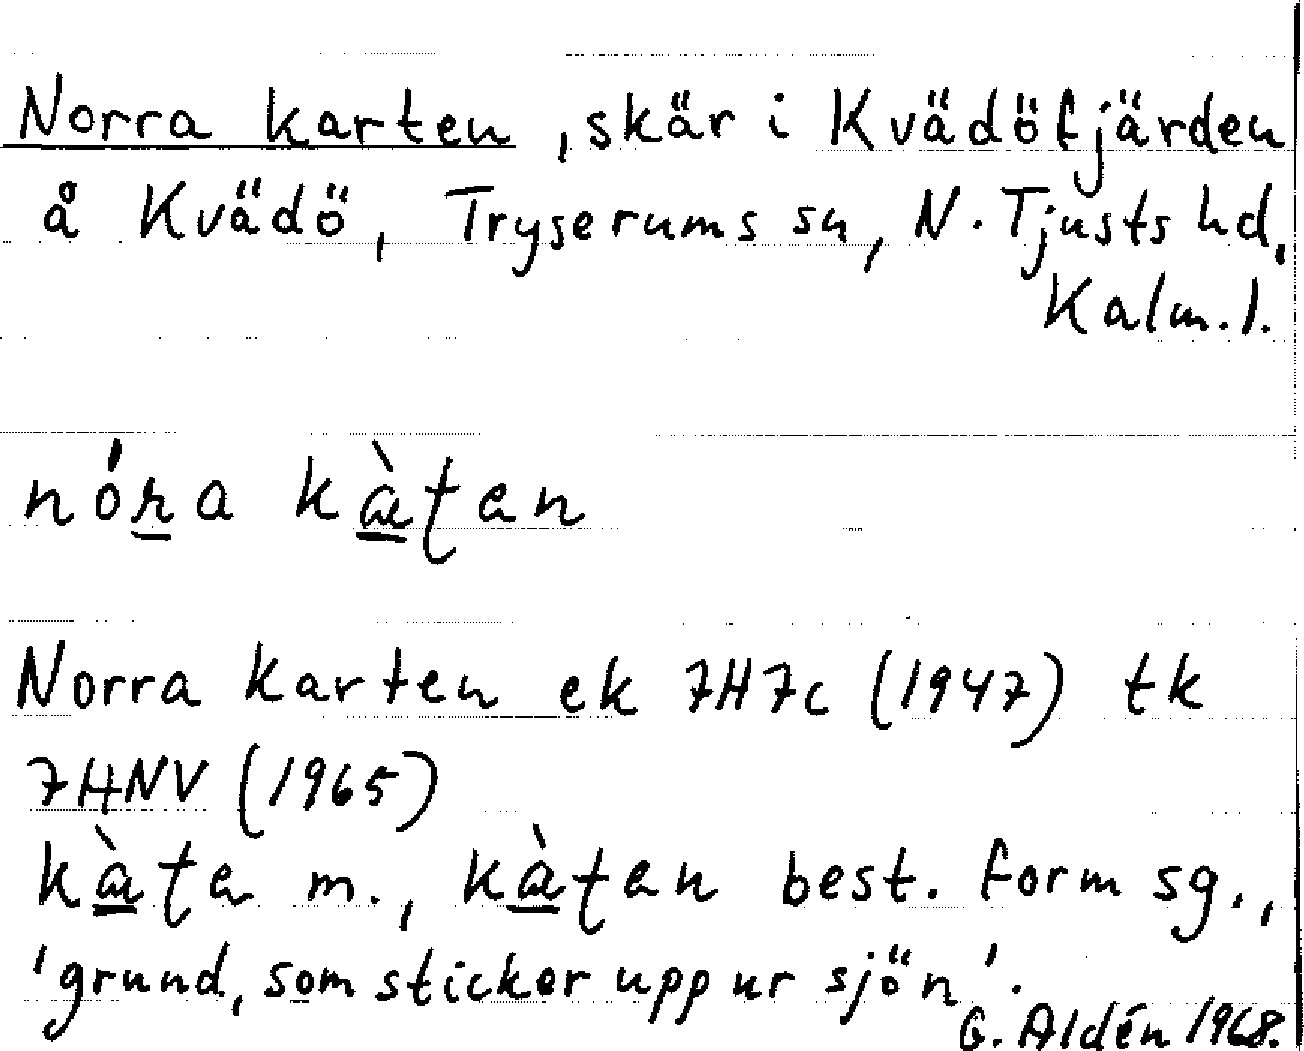 Norra karten, skär i Kvädöfjärden
å Kvädö, Tryserums sn, N. Tjusts hd,
Kalm. l.
nóra kæ̀ʈən
Norra karten ek 7H7c (1947) tk
7HNV (1965)
kæ̀ʈə m., kæ̀ʈən best. form sg.,
'grund, som sticker upp ur sjön'.
G. Aldén 1968.